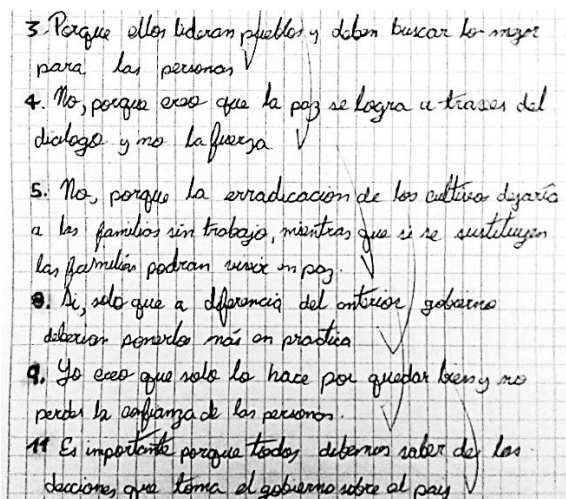 3. Porque ellos lideran pueblos y deben buscar lo mejor
para las personas
4. No, porque creo que la paz se logra a traves del
dialogo y no la fuerza.
5. No, porque la erradicacion de los cultivos dejaria
a las familias sin trabajo, mientras que si se sustituyen
las familias podran vivir en paz.
8. Si, solo que a diferencia del anterior gobierno
deberian ponerlo más en practica
9. Yo creo que solo lo hace por quedar bien y no
perder la confianza de las personas.
11 Es importante porque todos debemos saber de las
decciones que toma el gobierno sobre el pais